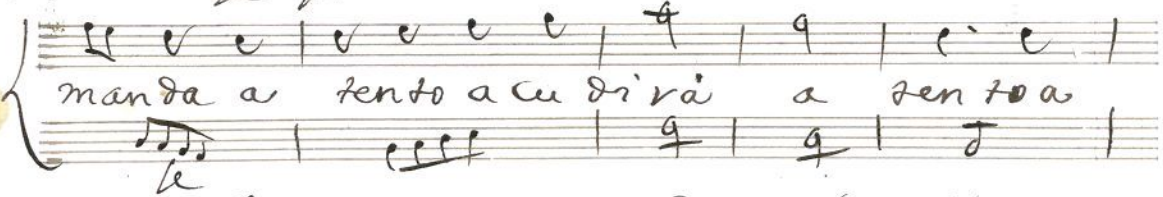 manda a tento a cu dirá a tento a